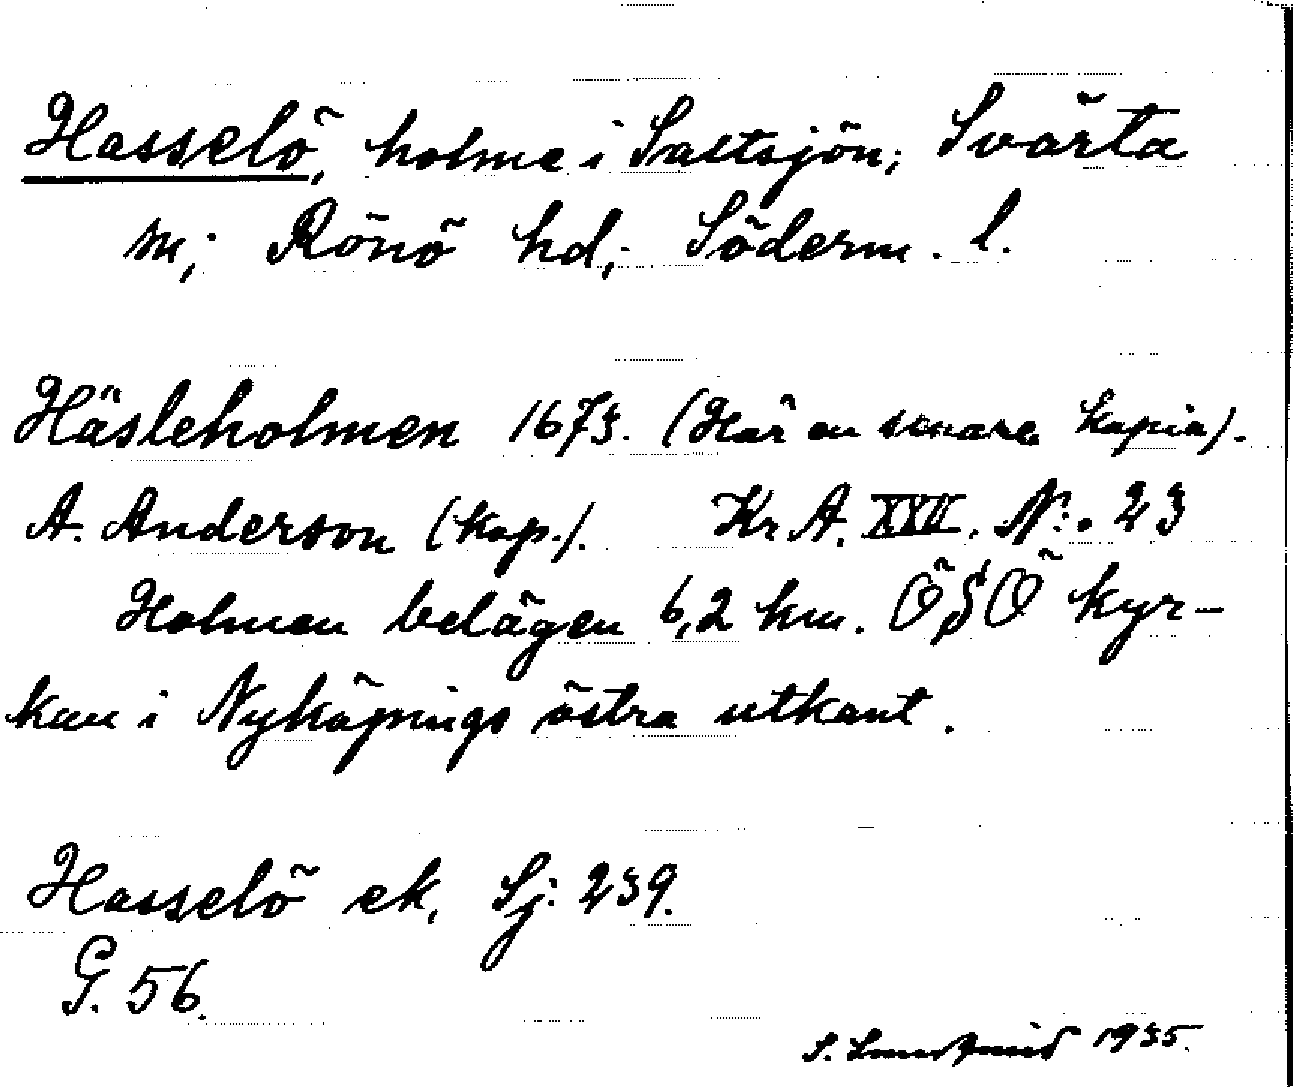 Hasselö, holme i Saltsjön; Svärta
sn; Rönö hd; Söderm. l.
Häsleholmen 1673. (Här en senare kopia).
A. Anderson (kop.). Kr. A. XVII. N:. 23
Holmen belägen 6,2 km. ÖSÖ kyr-
kan i Nyköpings östra utkant.
Hasselö ek. Sj: 239.
G. 56.
S. 1935.